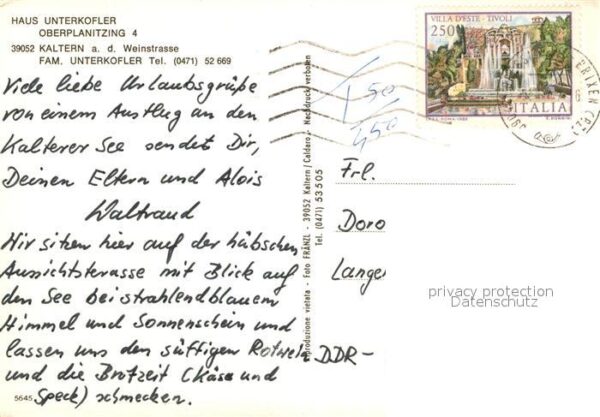 HAUS UNTERKOFLER
OBERPLANITZING 4
39052 KALTERN a. d. Weinstrasse
FAM. UNTERKOFLER Tel. (0471) 52 669
Viele liebe Urlaubsgrüße
von einem Ausflug an den
Kalterer See sendet Dir,
Deinen Eltern und Alois
Waltraud
Wir sitzen hier auf der hübschen
Aussichtsterasse mit Blick auf
den See bei strahlendblauem
Himmel und Sonnenschein und
lassen uns den süffigen Rotwein
und die Brotzeit (Käse und
Speck) schmecken.
5645
reproduzione vietata - Foto FRÄNZL - 39052 Kaltern / Caldaro - Nachdruck verboten
Tel. (0471) 53505
VILLA D'ESTE - TIVOLI
250
ITALIA
1,50
4,50
Frl.
Doro
Langer
DDR-
privacy protection
Datenschutz